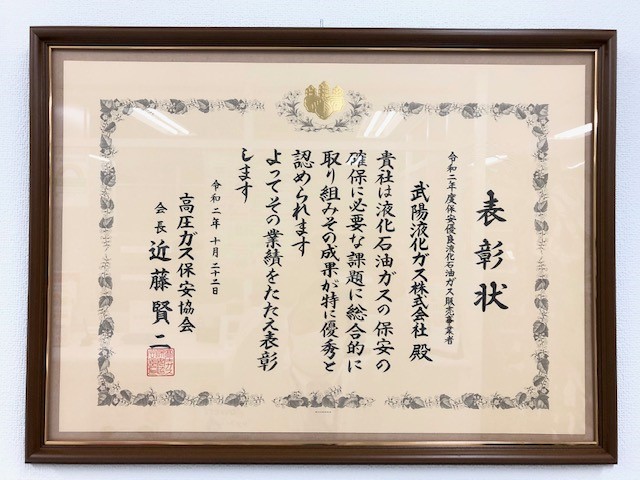 表彰状
令和二年度保安優良液化石油ガス販売事業者
武陽液化ガス株式会社 殿
貴社は液化石油ガスの保安の
確保に必要な課題に総合的に
取り組みその成果が特に優秀と
認められます
よってその業績をたたえ表彰
します
令和二年 十月二十二日
高圧ガス保安協会
会長 近藤賢二